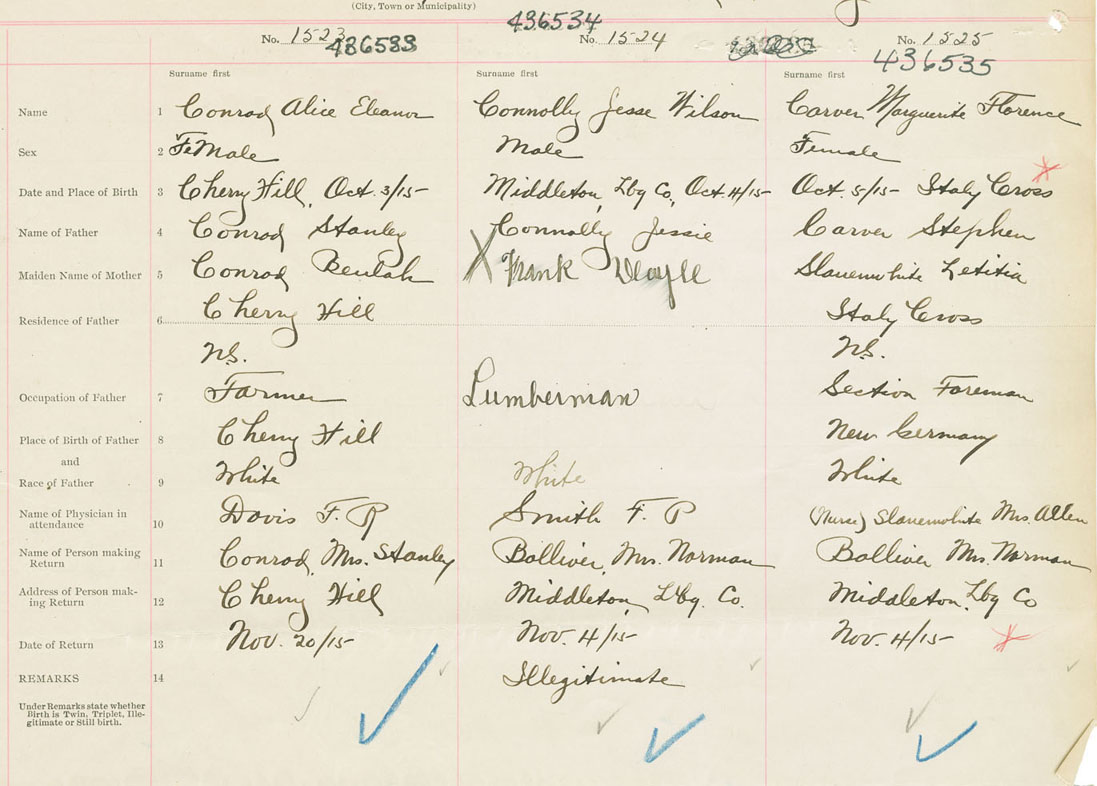 (City, Town or Municipality)
No. 1523 436533 436534 No. 1524 No. 1525 436535
Surname first Surname first Surname first
Name 1 Conrad Alice Eleanor Connolly Jesse Wilson Carver Marguerite Florence
Sex 2 FeMale Male Female
Date and Place of Birth 3 Cherry Hill, Oct. 3/15 Middleton, Lbg Co, Oct. 4/15 Oct. 5/15 Italy Cross
Name of Father 4 Conrad Stanley Connolly Jessie Carver Stephen
Maiden Name of Mother 5 Conrad Beulah X Frank Slauenwhite Letitia
Residence of Father 6 Cherry Hill Italy Cross
N.S. N.S.
Occupation of Father 7 Farmer Lumberman Section Foreman
Place of Birth of Father 8 Cherry Hill New Germany
and
Race of Father 9 White White White
Name of Physician in
attendance 10 Davis F. R Smith F. P (Nurse) Slauenwhite Mrs. Allen
Name of Person making
Return 11 Conrad, Mrs. Stanley Bolliver, Mrs. Norman Bolliver Mrs. Norman
Address of Person mak-
ing Return 12 Cherry Hill Middleton, Lbg. Co. Middleton, Lbg Co
Date of Return 13 Nov. 20/15 Nov. 4/15 Nov. 4/15
REMARKS 14 Illegitimate
Under Remarks state whether
Birth is Twin, Triplet, Ille-
gitimate or Still birth.